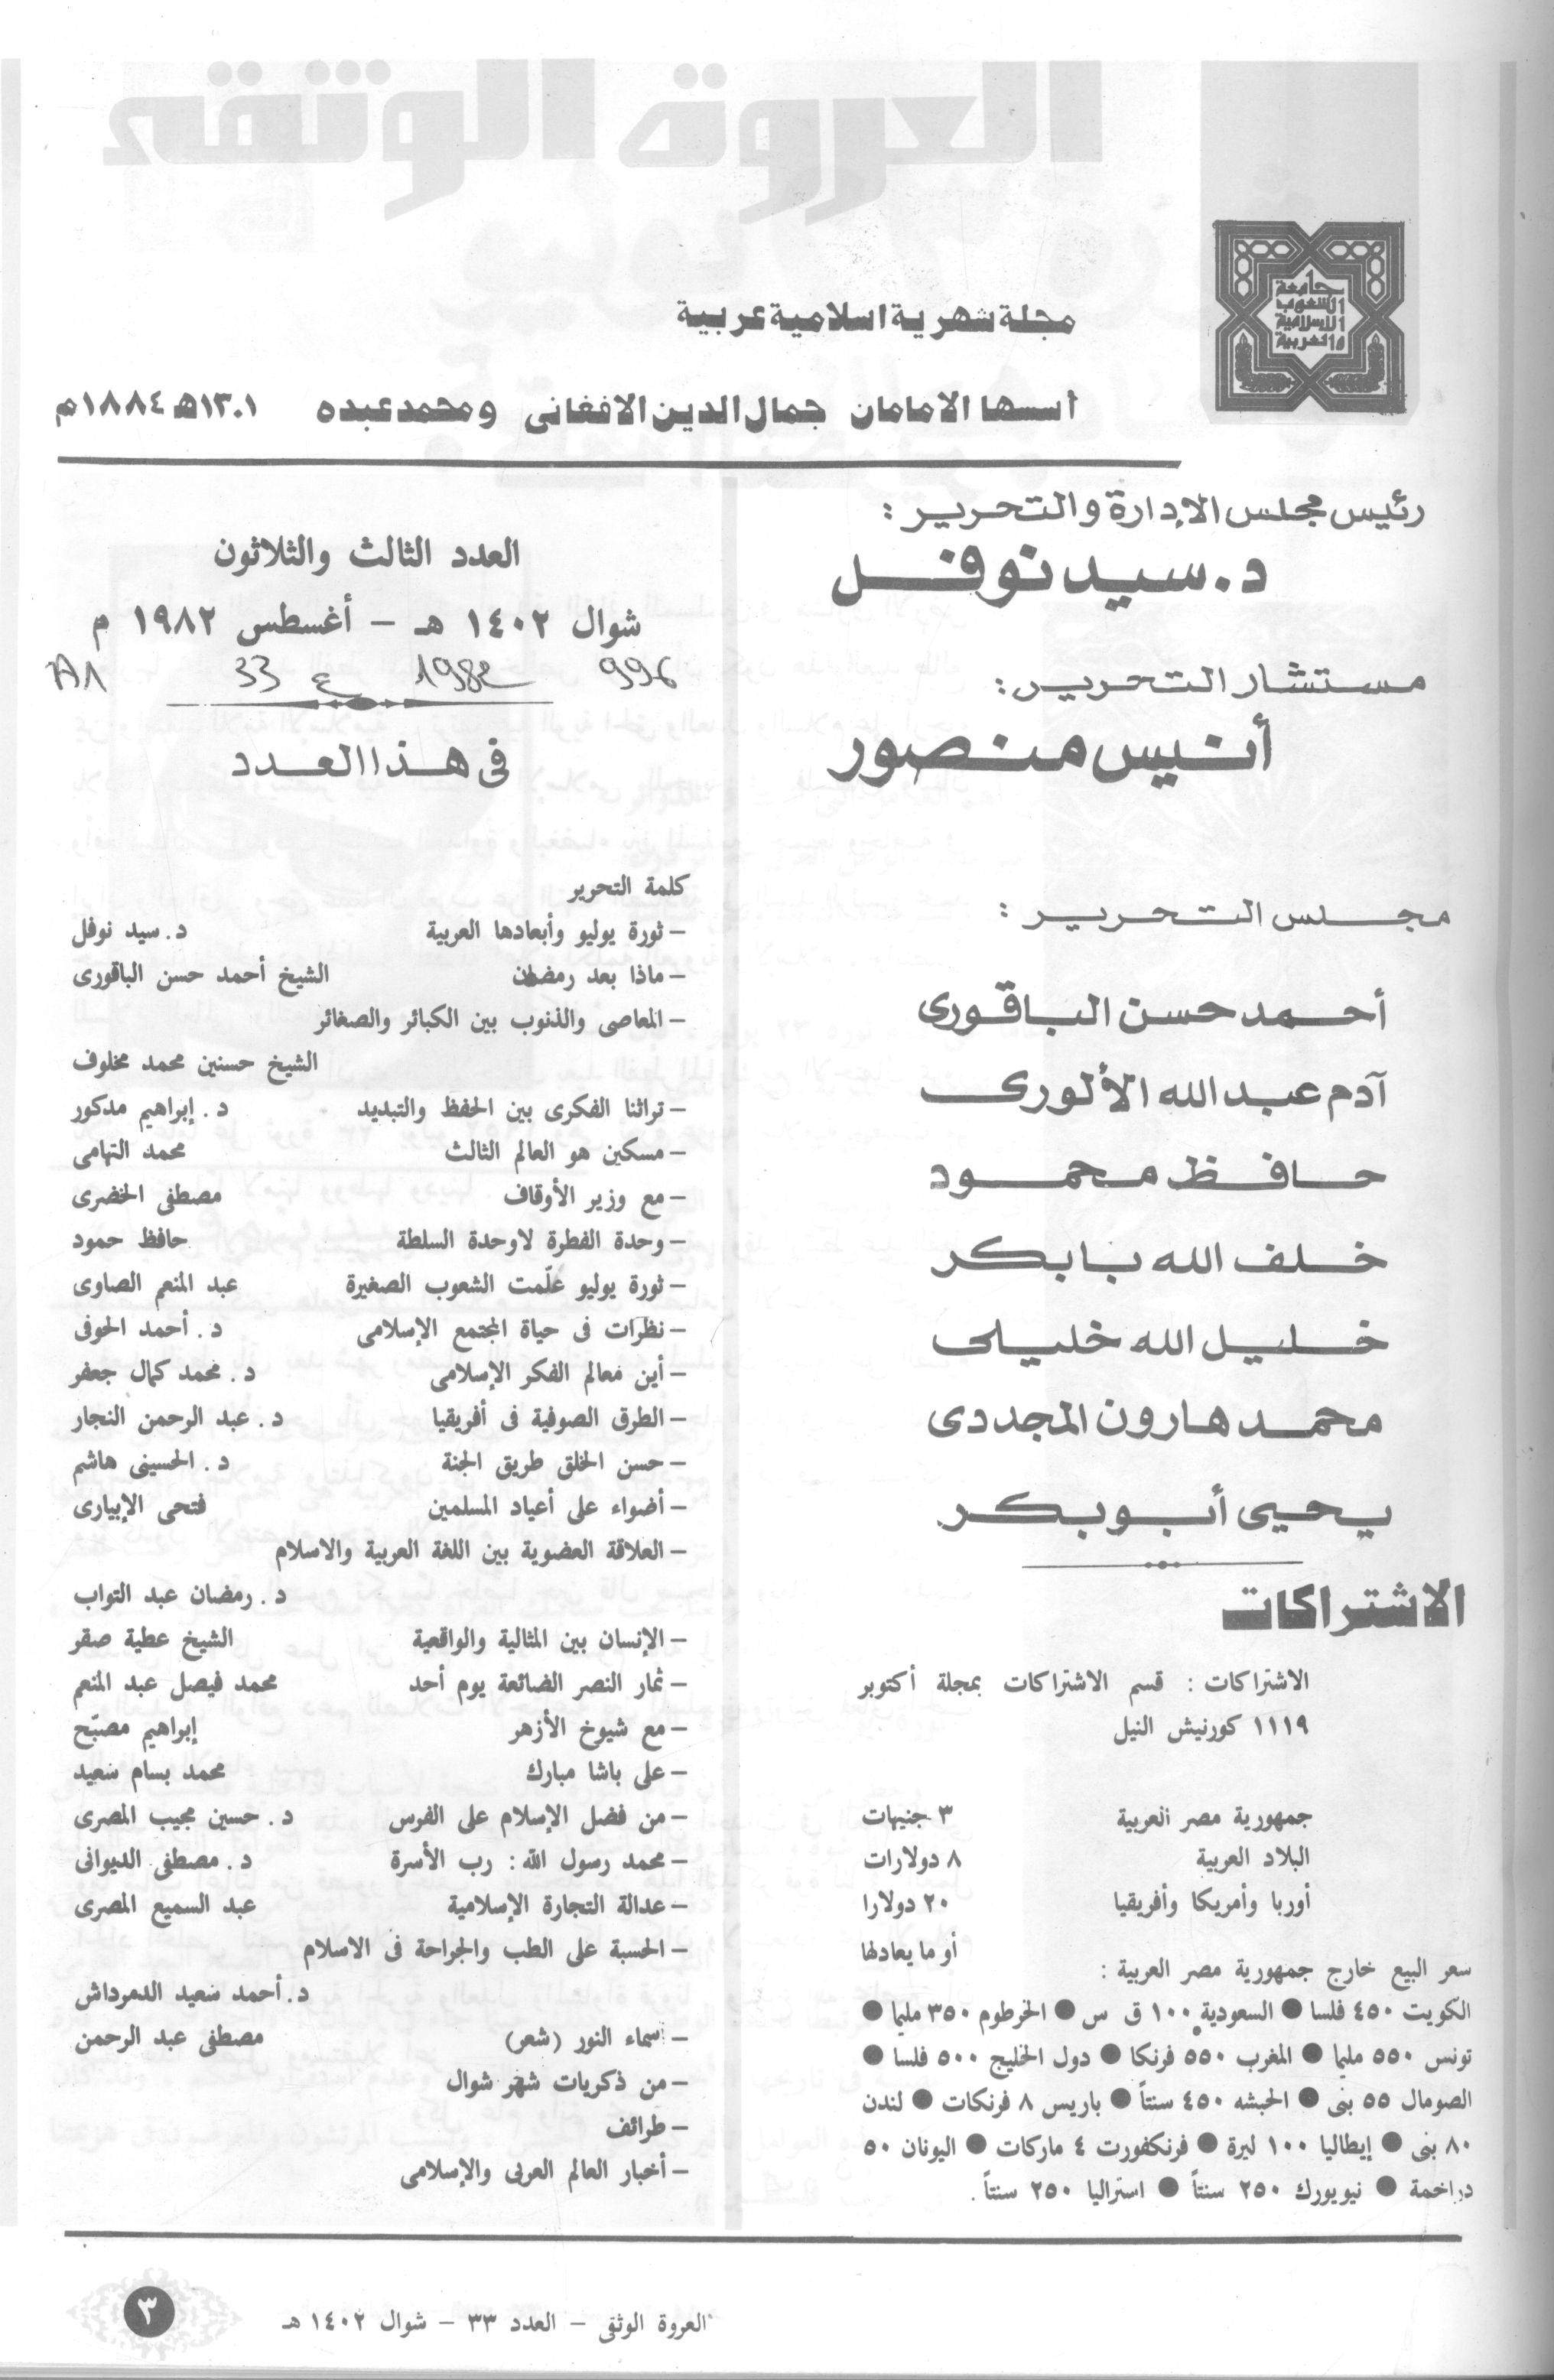 العروة الوثقى
جامعة
الشعوب
الإسلامية
والعربية
مجلة شهرية اسلامية عربية
أسسها الامامان جمال الدين الافغانى ومحمد عبده ١٣٠١هـ ١٨٨٤م
رئيس مجلس الإدارة والتحرير :
د. سيد نوفل
مستشار التحرير :
أنيس منصور
مجلس التحرير :
أحمد حسن الباقورى
آدم عبد الله الألورى
حافظ محمود
خلف الله بابكر
خليل الله خليلى
محمد هارون المجددى
يحيى أبو بكر
الاشتراكات
الاشتراكات : قسم الاشتراكات بمجلة أكتوبر
١١١٩ كورنيش النيل
جمهورية مصر العربية ٣ جنيهات
البلاد العربية ٨ دولارات
أوربا وأمريكا وأفريقيا ٢٠ دولارا
أو ما يعادلها
سعر البيع خارج جمهورية مصر العربية :
الكويت ٤٥٠ فلسا ● السعودية ١٠٠ ق س ● الخرطوم ٣٥٠ مليما ●
تونس ٥٥٠ مليما ● المغرب ٥٥٠ فرنكا ● دول الخليج ٥٠٠ فلسا ●
الصومال ٥٥ بنى ● الحبشه ٤٥٠ سنتاً ● باريس ٨ فرنكات ● لندن
٨٠ بنى ● إيطاليا ١٠٠ ليرة ● فرنكفورت ٤ ماركات ● اليونان ٥٠
دراخمة ● نيويورك ٢٥٠ سنتاً ● استراليا ٢٥٠ سنتاً .
العدد الثالث والثلاثون
شوال ١٤٠٢ هـ – أغسطس ١٩٨٢ م
996 1982 ع 33
فى هذا العدد
كلمة التحرير
– ثورة يوليو وأبعادها العربية د. سيد نوفل
– ماذا بعد رمضان الشيخ أحمد حسن الباقورى
– المعاصى والذنوب بين الكبائر والصغائر
الشيخ حسنين محمد مخلوف
– تراثنا الفكرى بين الحفظ والتبديد د. إبراهيم مدكور
– مسكين هو العالم الثالث محمد التهامى
– مع وزير الأوقاف مصطفى الخضرى
– وحدة الفطرة لاوحدة السلطة حافظ حمود
– ثورة يوليو علّمت الشعوب الصغيرة عبد المنعم الصاوى
– نظرات فى حياة المجتمع الإسلامى د. أحمد الحوفى
– أين معالم الفكر الإسلامى د. محمد كمال جعفر
– الطرق الصوفية فى أفريقيا د. عبد الرحمن النجار
– حسن الخلق طريق الجنة د. الحسينى هاشم
– أضواء على أعياد المسلمين فتحى الإبيارى
– العلاقة العضوية بين اللغة العربية والاسلام
د. رمضان عبد التواب
– الإنسان بين المثالية والواقعية الشيخ عطية صقر
– ثمار النصر الضائعة يوم أحد محمد فيصل عبد المنعم
– مع شيوخ الأزهر إبراهيم مصبّح
– على باشا مبارك محمد بسام سعيد
– من فضل الإسلام على الفرس د. حسين مجيب المصرى
– محمد رسول الله : رب الأسرة د. مصطفى الديوانى
– عدالة التجارة الإسلامية عبد السميع المصرى
– الحسبة على الطب والجراحة فى الاسلام
د. أحمد سعيد الدمرداش
– أسماء النور (شعر) مصطفى عبد الرحمن
– من ذكريات شهر شوال
– طرائف
– أخبار العالم العربى والإسلامى
العروة الوثقى – العدد ٣٣ – شوال ١٤٠٢ هـ
٣